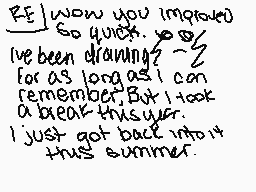 RE wow you improved
so quick.
I've been drawing
for as long as I can
remember, But I took
a break this year.
I just got back into it
this summer.